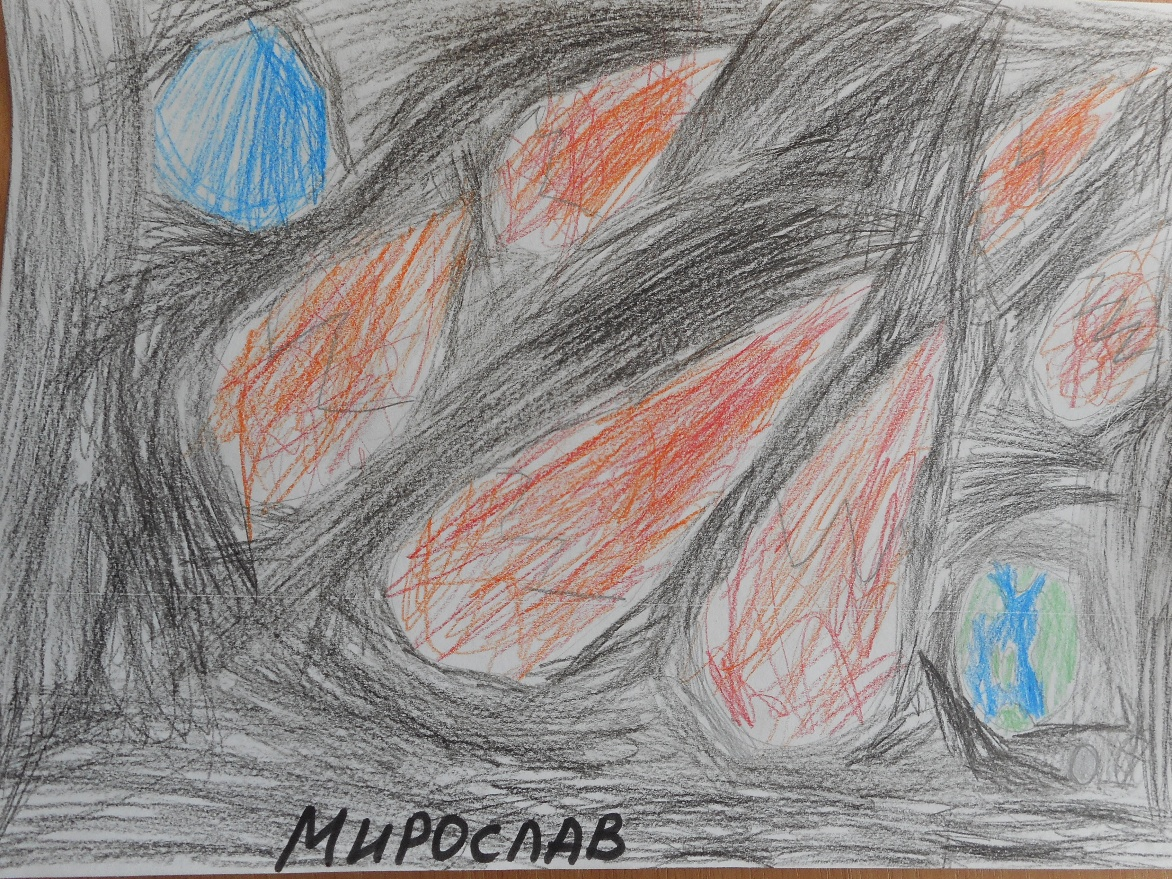 МИРОСЛАВ